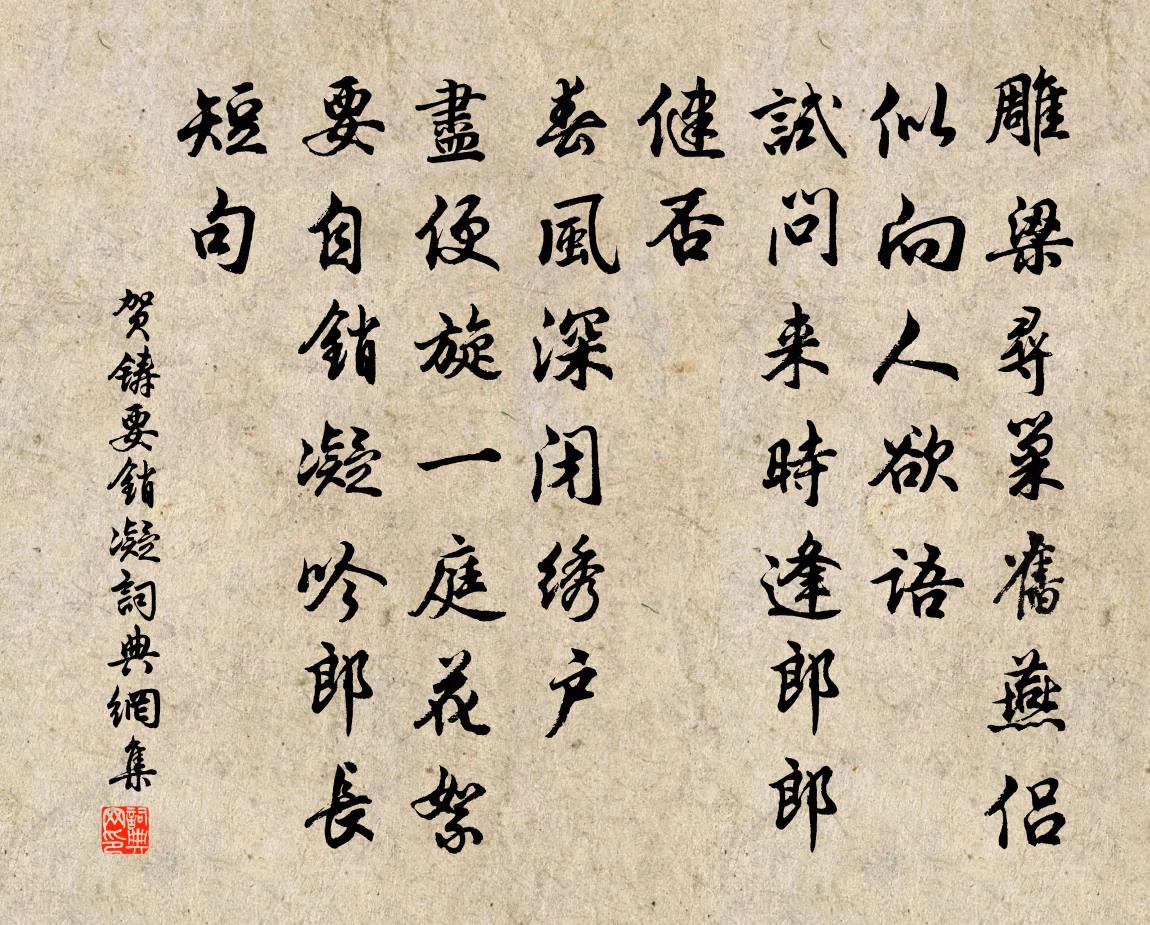 雕梁尋巢舊燕侣
似向人欲語
試問来時逢郎郎
健否
春風深闭绣户
盡便旋一庭花絮
要自銷凝吟郎長
短句
贺鑄要銷凝詞典網集
詞典
网印